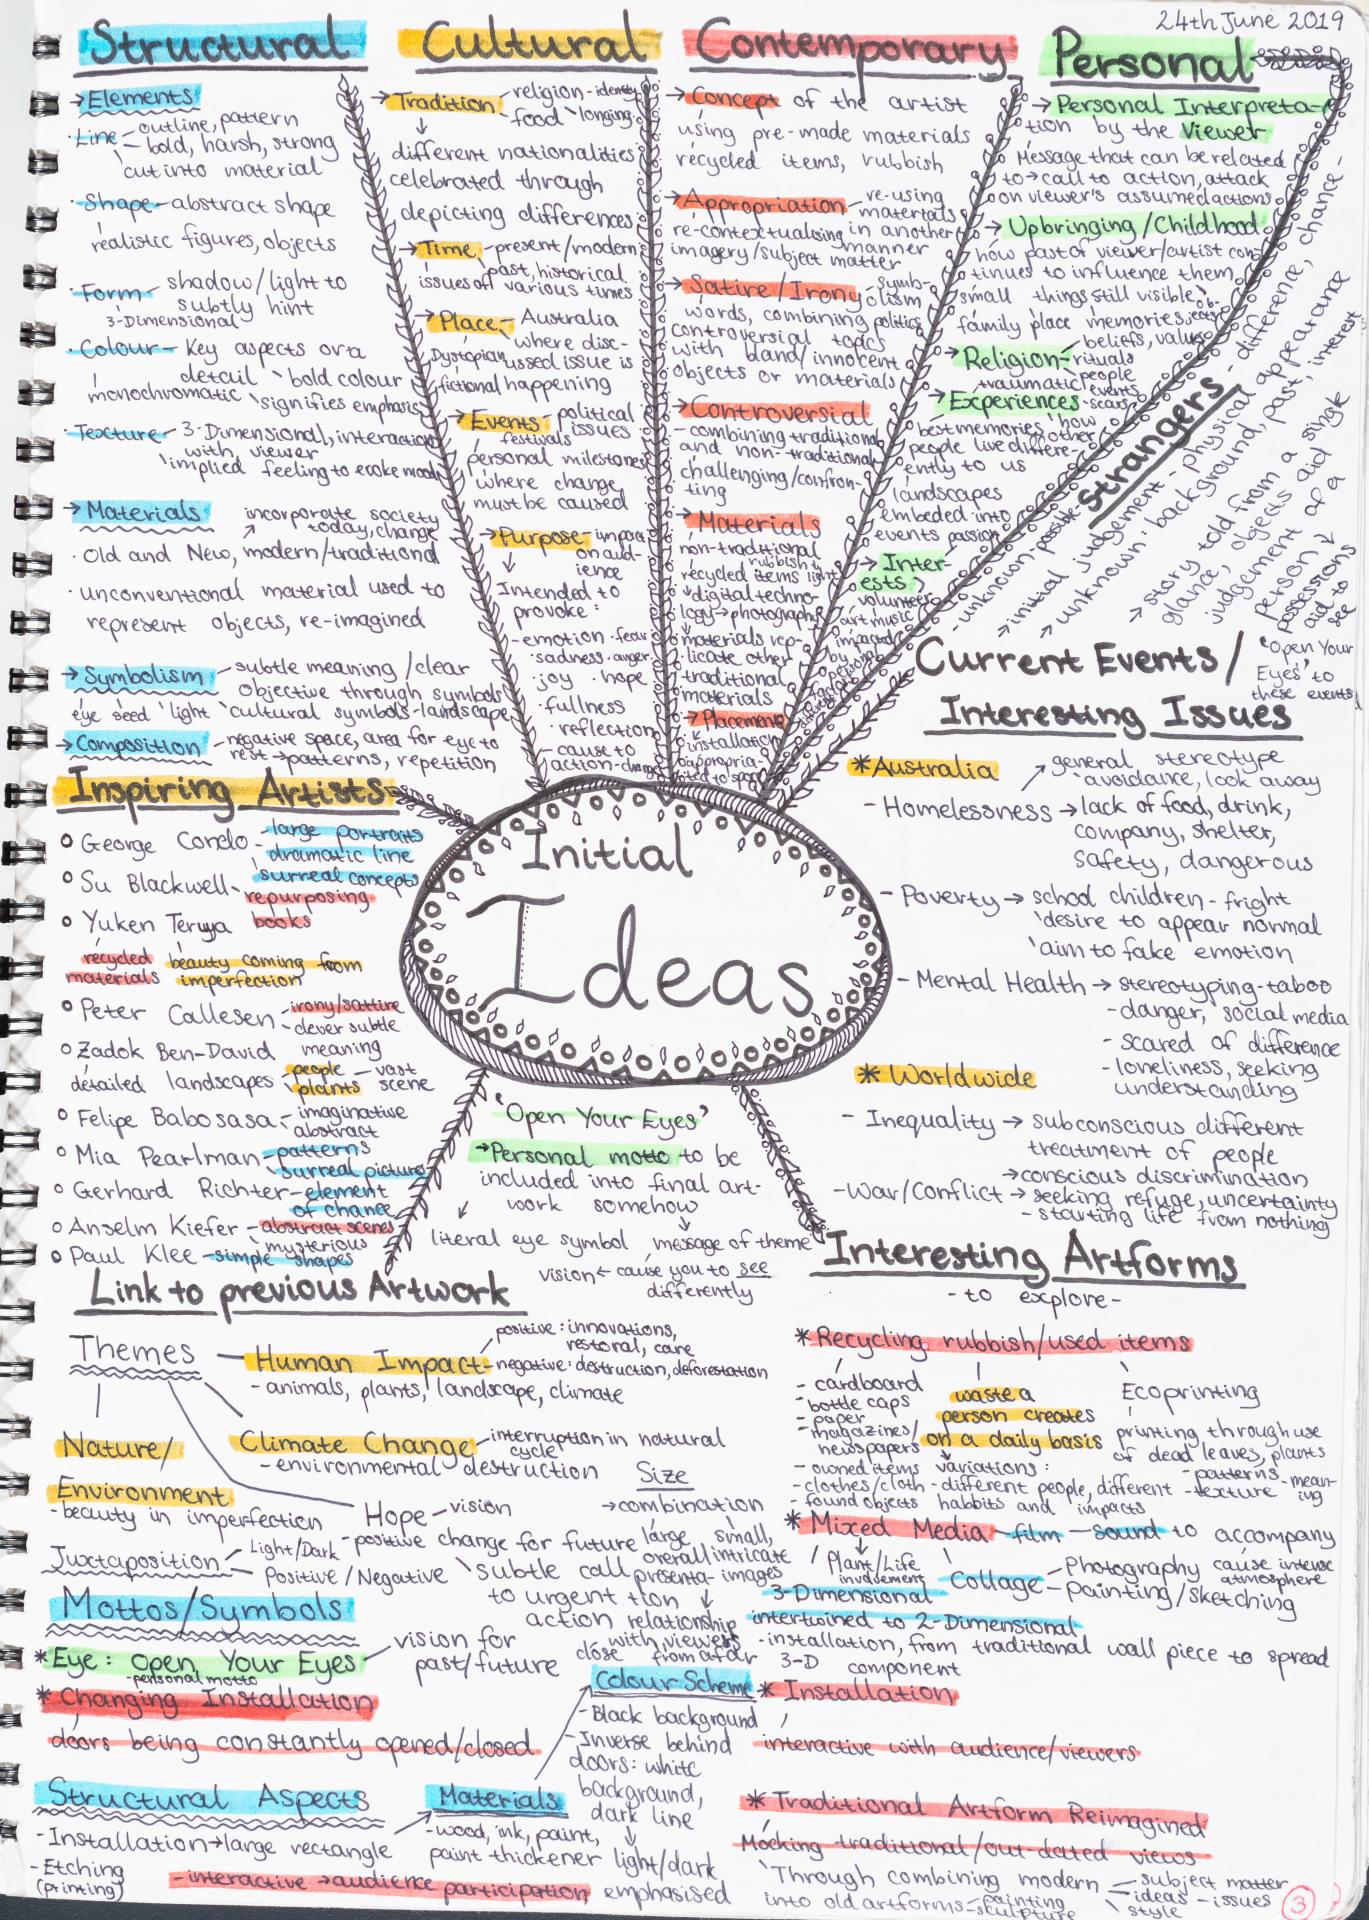 24th June 2019
Structural
→Elements
·Line – outline, pattern
– bold, harsh, strong
cut into material
·Shape – abstract shape
realistic figures, objects
·Form – shadow/light to
subtly hint
3-Dimensional
·Colour – Key aspects or a
detail bold colour
monochromatic signifies emphasis
·Texture – 3-Dimensional, interaction
with viewer
implied feeling to evoke mood
→Materials
incorporate society
today, change
·Old and New, modern/traditional
·unconventional material used to
represent objects, re-imagined
→Symbolism – subtle meaning/clear
objective through symbols
eye seed light cultural symbols-landscape
→Composition – negative space, area for eye to
rest→patterns, repetition
Cultural
→Tradition – religion-identity
food longing
different nationalities
celebrated through
depicting differences
→Time – present/modern
past, historical
issues of various times
→Place – Australia
where disc-
ussed issue is
Dystopian
fictional happening
→Events – political
issues
festivals
personal milestones
where change
must be caused
→Purpose – impact
on aud-
ience
Intended to
provoke:
-emotion ·fear
·sadness ·anger
·joy ·hope
·fullness
·reflection
-cause to
action-change
Contemporary
→Concept of the artist
using pre-made materials
recycled items, rubbish
→Appropriation – re-using
materials
re-contextualising in another
manner
imagery/subject matter
→Satire/Irony – symb-
olism
words, combining politics
controversial topics
with bland/innocent
objects or materials
→Controversial
-combining traditional
and non-traditional
challenging/confron-
ting
→Materials
non-traditional
rubbish
recycled items light
digital techno-
logy→photography
materials rep-
licate other
traditional
materials
→Placement
installation
appropria-
ted to space
Personal
→Personal Interpreta-
tion by the Viewer
Message that can be related
to→call to action, attack
on viewer's assumed actions
→Upbringing/Childhood
how past of viewer/artist con-
tinues to influence them
small things still visible
family place memories
→Religion – beliefs, values
rituals
people
traumatic events
→Experiences -scars
best memories how
people live differe-
ently to us
other
landscapes
embeded into
events passion
→Inter-
ests
volunteer
art music
impacted
by
personal
Strangers
- difference, chance -
-unknown, possible
→initial judgement - physical appearance
→unknown: background, past, interest
→story told from a single
glance, objects aid
judgement of a
person
possessions
aid to
see
"Open Your
Eyes" to
these events
Current Events/
Interesting Issues
*Australia
general stereotype
avoidance, look away
-Homelessness → lack of food, drink,
company, shelter,
safety, dangerous
-Poverty → school children-fright
desire to appear normal
aim to fake emotion
-Mental Health → stereotyping-taboo
-danger, social media
-scared of difference
-loneliness, seeking
understanding
*Worldwide
-Inequality → subconscious different
treatment of people
→conscious discrimination
-War/Conflict → seeking refuge, uncertainty
-starting life from nothing
Initial
Ideas
Inspiring Artists
George Condo – large portraits
dramatic line
surreal concepts
Su Blackwell – repurposing
books
Yuken Teruya
recycled
materials
beauty coming from
imperfection
Peter Callesen – irony/satire
clever subtle
meaning
Zadok Ben-David
detailed landscapes
people
plants
vast
scene
Felipe Babosasa – imaginative
abstract
Mia Pearlman – patterns
surreal picture
Gerhard Richter – element
of chance
Anselm Kiefer – abstract scenes
mysterious
Paul Klee – simple shapes
'Open Your Eyes'
→Personal motto to be
included into final art-
work somehow
literal eye symbol message of theme
vision← cause you to see
differently
Link to previous Artwork
Themes
Human Impact
positive: innovations,
restoral, care
-negative: destruction, deforestation
-animals, plants, landscape, climate
Nature/
Environment
-beauty in imperfection
Climate Change – interruption in natural
cycle
-environmental destruction
Hope – vision
-positive change for future
subtle call
to urgent
action
Juxtaposition – Light/Dark
Positive/Negative
Size
→combination
large small,
overall intricate
presenta- images
tion
relationship
with viewers
close from afar
Mottos/Symbols
*Eye: Open Your Eyes
-personal motto
vision for
past/future
*Changing Installation
doors being constantly opened/closed
Structural Aspects
-Installation→large rectangle
-Etching
(printing)
-interactive→audience participation
Materials
-wood, ink, paint,
paint thickener
Colour Scheme
-Black background
-Inverse behind
doors: white
background,
dark line
light/dark
emphasised
Interesting Artforms
-to explore-
*Recycling rubbish/used items
-cardboard
-bottle caps
-paper
-magazines/
newspapers
-owned items
-clothes/cloth
-found objects
waste a
person creates
on a daily basis
variations:
-different people, different
habbits and impacts
Ecoprinting
printing through use
of dead leaves, plants
-patterns
-texture
-mean-
ing
*Mixed Media – film – sound to accompany
cause intense
atmosphere
Plant/Life
involvement
Collage – Photography
painting/sketching
3-Dimensional
intertwined to 2-Dimensional
-installation, from traditional wall piece to spread
3-D component
*Installation
interactive with audience/viewers
*Traditional Artform Reimagined
Mocking traditional/out-dated views
Through combining modern – subject matter
ideas – issues
style
into old artforms – painting
sculpture
3